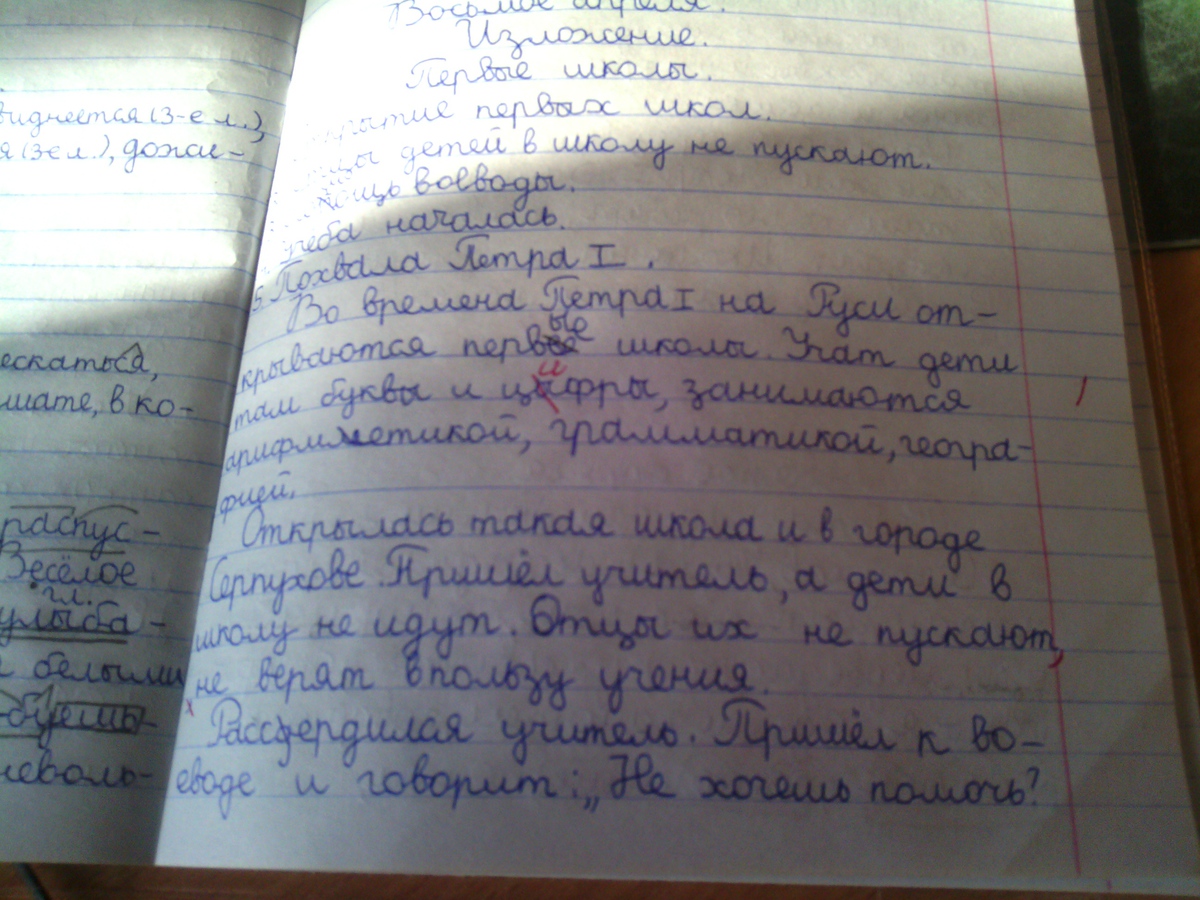 виднеется (3-е л.),
я (3 е л.), дожи-
ескаться,
шате, в ко-
распус-
Весёлое
гл.
улыба-
белыми
буешь-
неволь-
Восьмое апреля.
Изложение.
Первые школы.
крытие первых школ.
цы детей в школу не пускают.
мощь воеводы.
учеба началась.
5. Похвала Петра I.
Во времена Петра I на Руси от-
крываются первые школы. Учат дети
там буквы и цифры, занимаются
арифметикой, грамматикой, геогра-
фией.
Открылась такая школа и в городе
Серпухове. Пришёл учитель, а дети в
школу не идут. Отцы их не пускают,
не верят в пользу учения.
Рассердился учитель. Пришёл к во-
еводе и говорит: „Не хочешь помочь?